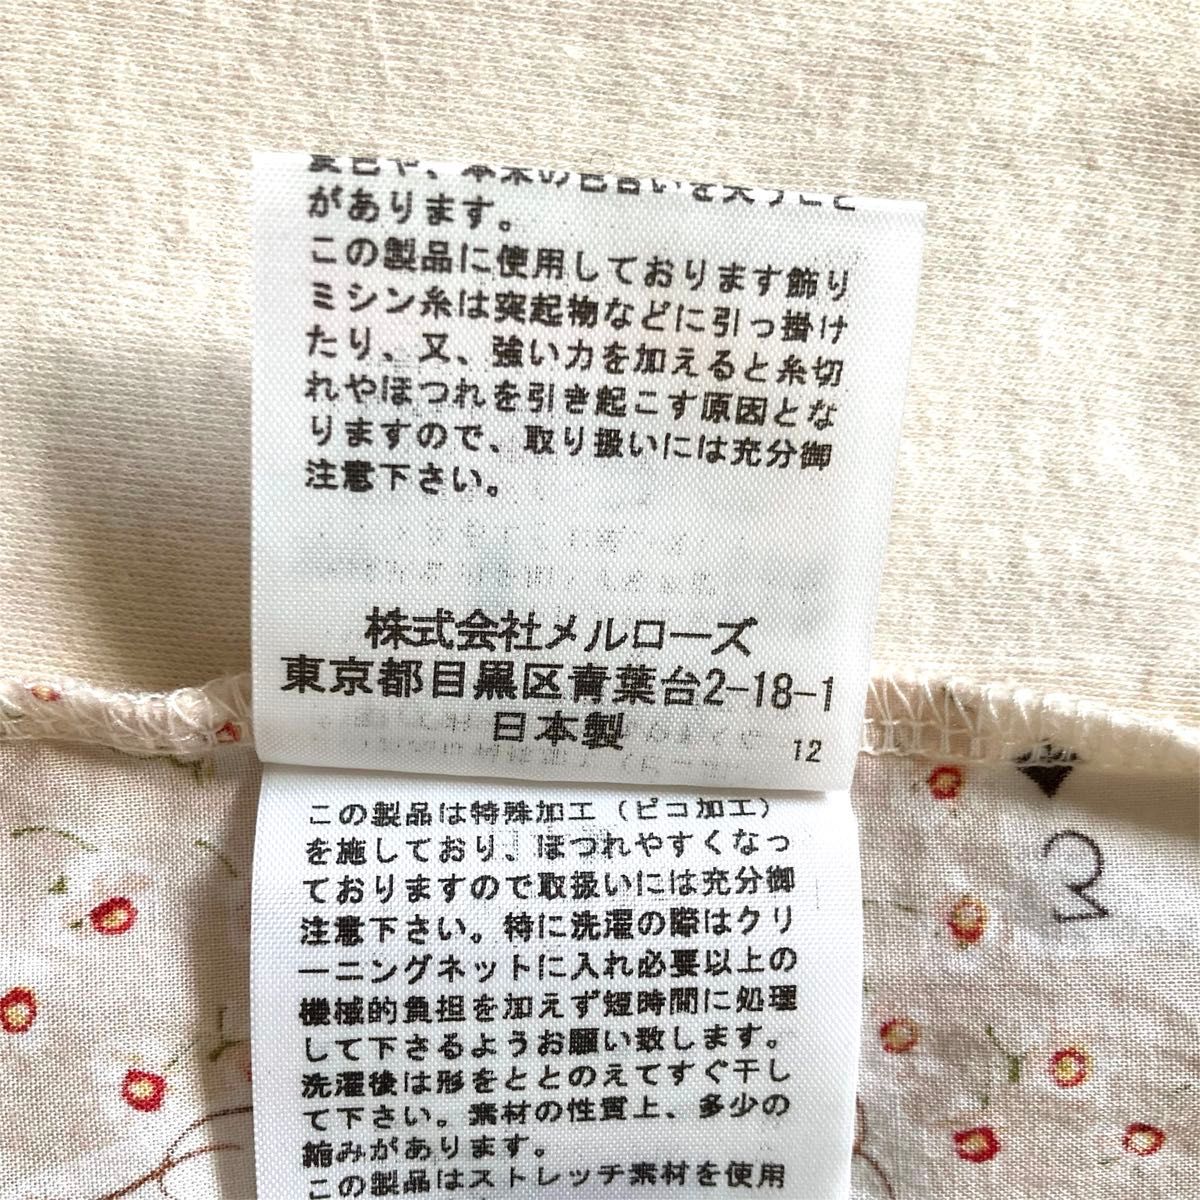 変色や、本来の色合いを失うこと
があります。
この製品に使用しております飾り
ミシン糸は突起物などに引っ掛け
たり、又、強い力を加えると糸切
れやほつれを引き起こす原因とな
りますので、取り扱いには充分御
注意下さい。
株式会社メルローズ
東京都目黒区青葉台2-18-1
日本製
12
この製品は特殊加工(ピコ加工)
を施しており、ほつれやすくなっ
ておりますので取扱いには充分御
注意下さい。特に洗濯の際はクリ
ーニングネットに入れ必要以上の
機械的負担を加えず短時間に処理
して下さるようお願い致します。
洗濯後は形をととのえてすぐ干し
て下さい。素材の性質上、多少の
縮みがあります。
この製品はストレッチ素材を使用